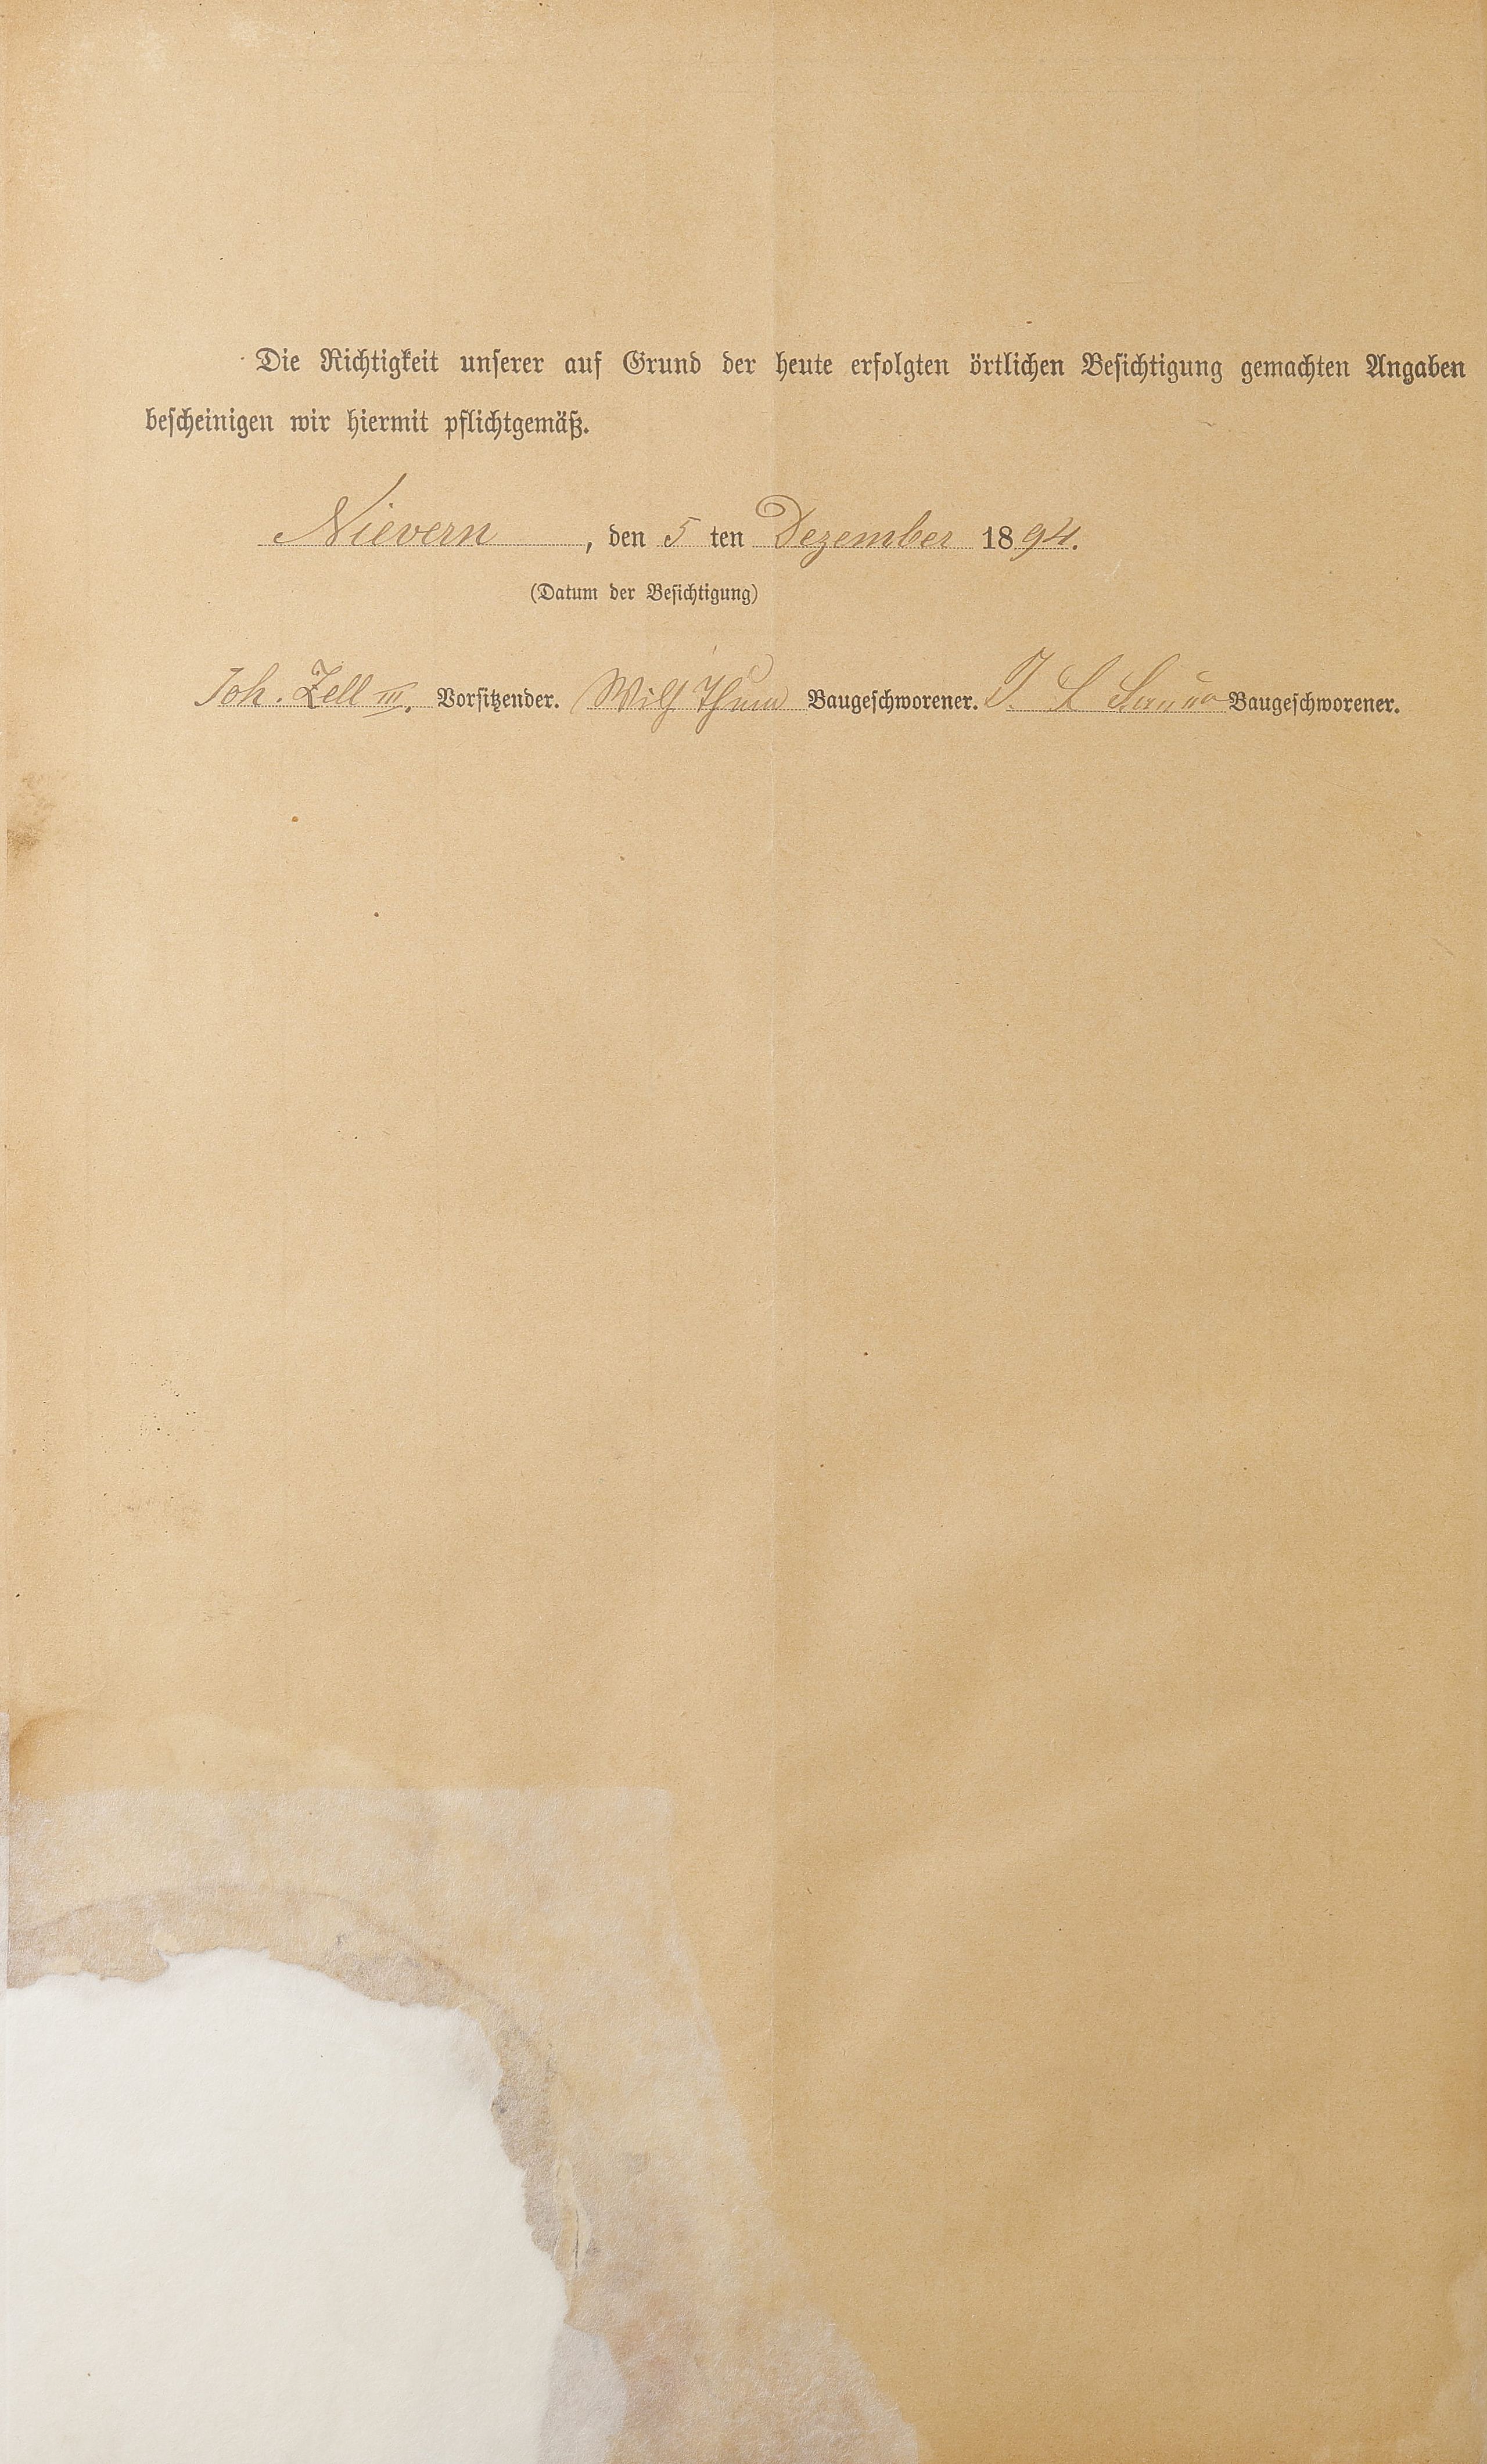 Die Richtigkeit unserer auf Grund der heute erfolgten örtlichen Besichtigung gemachten Angaben
bescheinigen wir hiermit pflichtgemäß.
Nievern, den 5 ten Dezember 1894.
(Datum der Besichtigung)
Joh. Zell III. Vorsitzender. Wilh Thum Baugeschworener. J. L Baugeschworener.